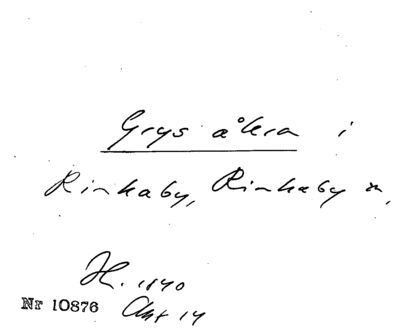 Grys åkra i
Rinkaby, Rinkaby sn,
H. 1840
Nr 10876 Akt 14